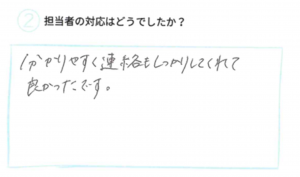 ② 担当者の対応はどうでしたか？
分かりやすく連絡もしっかりしてくれて
良かったです。